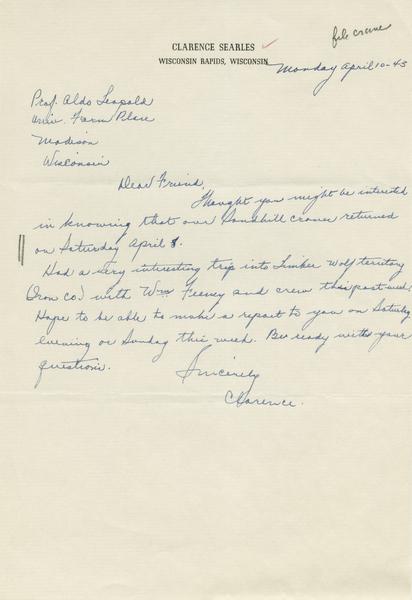 file crane
CLARENCE SEARLES
WISCONSIN RAPIDS, WISCONSIN
Monday April 10-45
Prof. Aldo Leopold
Univ. Farm Place
Madison
Wisconsin
Dear Friend,
Thought you might be interested
in knowing that our Sandhill cranes returned
on Saturday April 8.
Had a very interesting trip into Timber Wolf territory
(Iron Co.) with Wm Feeney and crew this past week.
Hope to be able to make a report to you on Saturday
evening or Sunday this week. Be ready with your
questions.
Sincerely
Clarence.